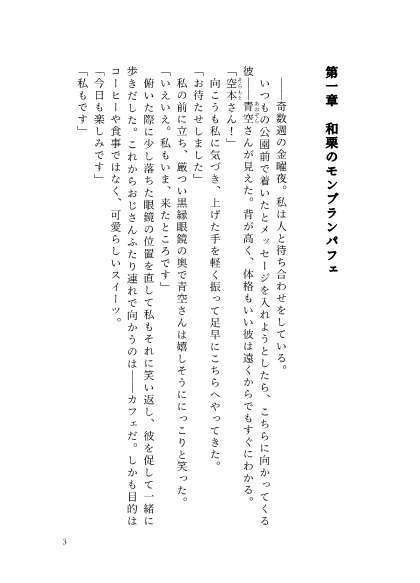 第一章　和栗のモンブランパフェ
――奇数週の金曜夜。私は人と待ち合わせをしている。
いつもの公園前で着いたとメッセージを入れようとしたら、こちらに向かってくる
彼――青空さんが見えた。背が高く、体格もいい彼は遠くからでもすぐにわかる。
「空本さん！」
向こうも私に気づき、上げた手を軽く振って足早にこちらへやってきた。
「お待たせしました」
私の前に立ち、厳つい黒縁眼鏡の奥で青空さんは嬉しそうににっこりと笑った。
「いえいえ。私もいま、来たところです」
俯いた際に少し落ちた眼鏡の位置を直して私もそれに笑い返し、彼を促して一緒に
歩きだした。これからおじさんふたり連れで向かうのは――カフェだ。しかも目的は
コーヒーや食事ではなく、可愛らしいスイーツ。
「今日も楽しみです」
「私もです」
3